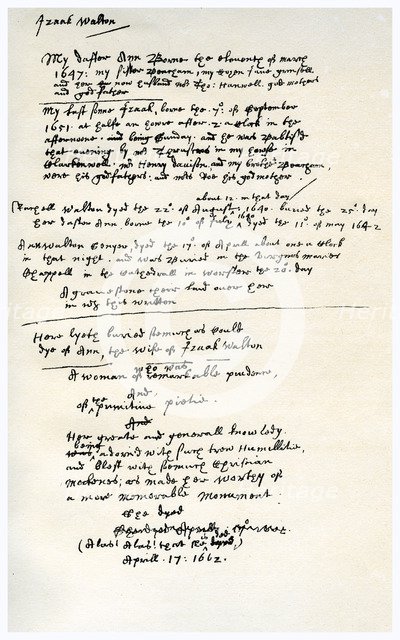 Izaak Walton
My dafter Ann borne the eleventh of march
1647: my sister Beacham, my Cozen Jane Grinsell
and her now husband Mr Tho: Hanwell. god mothers
and god father
My last sonn Izaak, borne the .7°. of September
1651. at halfe an howre after. 2. a Clock in the
afternoone. and being Sunday. and he was Baptised
that evening by Mr Thruscros in my howse in
Clarkenwell. Mr Henry Davison and my brother Beacham,
were his godfathers. and Mrs Roe his god mother
about 12. in that day
Rachell Walton dyed the 22°. of August 1640. buried the 25°. day
her dafter Ann borne the 10° of July 1640 dyed the 11°. of may 1642
Ann Walton dyed the 17°. of Aprill about one a Clock
in that night. and was buried in the virgins maries
Chappell in the Cathedrall in worster the 20. day
A gravestone there laid over her
in wch this written
Here lyeth buried soe much as could
dye of Ann, the wife of Izaak Walton
who was
A woman of remarkable prudence,
and,
of the primitive pietie.
And
Her greate and generall knowledg
being
adorned with such trew Humillitie,
and blest with soe much Christian
meekenes; as made her worthy of
a more memorable monument.
She dyed
(Alas! Alas! that she is dead)
Aprill. 17: 1662.